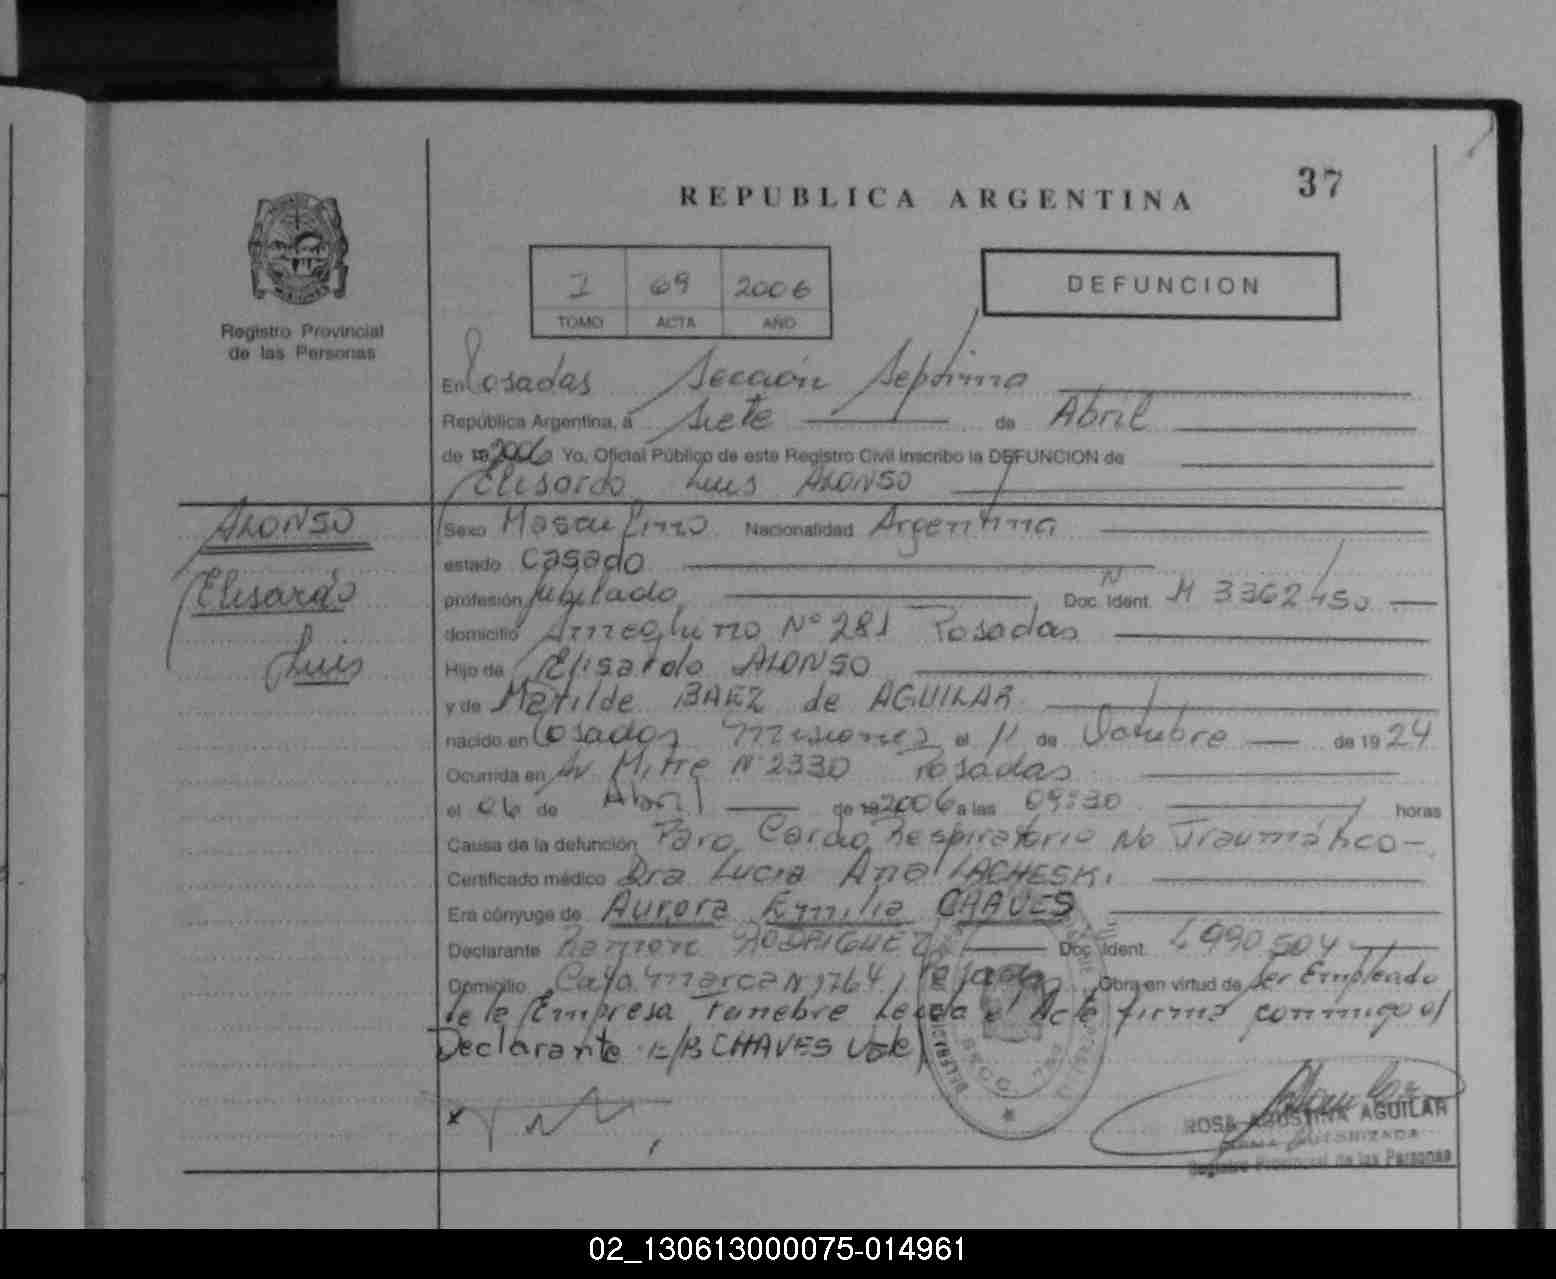 37
REPUBLICA ARGENTINA
I 69 2006
TOMO ACTA AÑO
DEFUNCION
Registro Provincial
de las Personas
En Posadas Sección Septima
República Argentina, a Siete de Abril
de 19 2006 Yo, Oficial Público de este Registro Civil inscribo la DEFUNCION de
Elisardo Luis ALONSO
ALONSO
Elisardo
Luis
Sexo Masculino Nacionalidad Argentina
estado Casado
profesión Jubilado Doc. Ident. M 3362450
domicilio Ameghino Nº 281 Posadas
Hijo de Elisardo ALONSO
y de Matilde BAEZ de AGUILAR
nacido en Posadas Misiones el 11 de Octubre de 1924
Ocurrida en Av. Mitre Nº 2330 Posadas
el 06 de Abril de 19 2006 a las 09:30 horas
Causa de la defunción Paro Cardio Respiratorio No Traumático
Certificado médico Dra Lucia Ana LACHESKI
Era cónyuge de Aurora Emilia CHAVES
Declarante Ramon RODRIGUEZ Doc. Ident. 4990504
Domicilio Catamarca Nº 1764 Posadas Obra en virtud de Ser Empleado
de la Empresa Funebre Leida el Acta firma conmigo el
Declarante E/R CHAVES Vale
ROSA AGUSTINA AGUILAR
FIRMA AUTORIZADA
Registro Provincial de las Personas
02_130613000075-014961